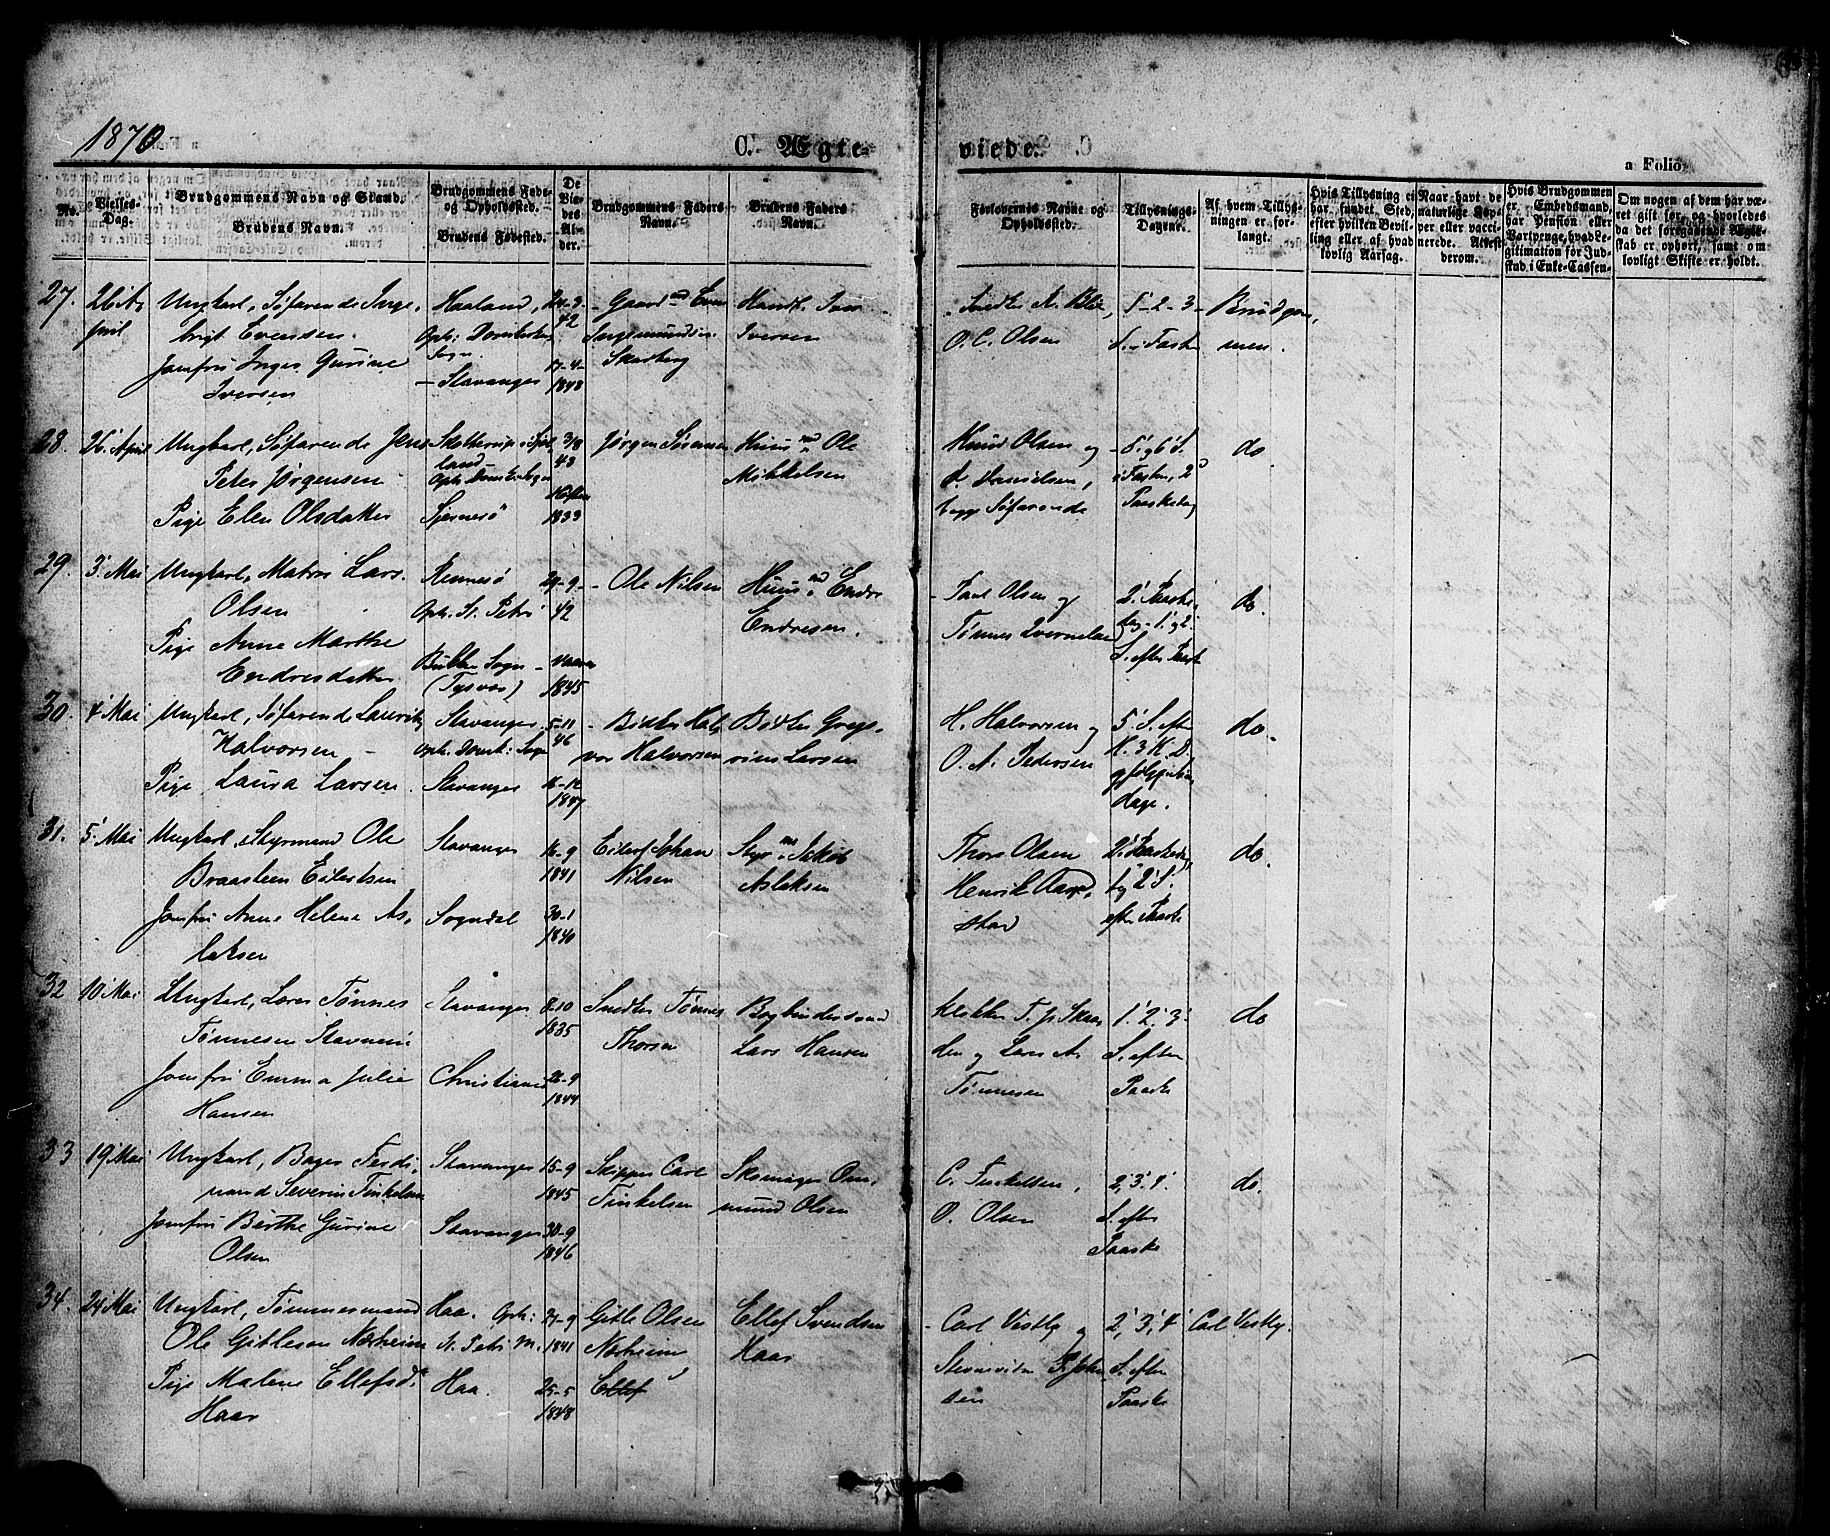 1870
C. Ægte-
viede.
a Folio
No.
Vielses-
Dag.
Brudgommens Navn og Stand.
Brudens Navn.
Brudgommens Føde-
og Opholdssted.
Brudens Fødested.
De
Vie-
des Al-
der.
Brudgommens Faders
Navn.
Brudens Faders
Navn.
Forlovernes Navne og
Opholdssted.
Tillysnings-
Dagene.
Af hvem Tillys-
ningen er for-
langt.
Hvis Tillysning ei
har fundet Sted,
efter hvilken Bevil-
ling eller af hvad
lovlig Aarsag.
Naar havt de
naturlige Kop-
per eller vacci-
nerede. Attest
derom.
Hvis Brudgommen
er Embedsmand,
har Pension eller
Vartpenge, hvad Le-
gitimation for Ind-
skud i Enke-Cassen.
Om nogen af dem har væ-
ret gift før, og hvorledes
da det foregaaende Ægte-
skab er ophørt, samt om
lovligt Skifte er holdt.
27.
26 A-
pril
Ungkarl, Søfarende Inge-
brigt Evensen.
Jomfru Inger Gurine
Iversen
Haaland,
Oph: Domkirkes
Sogn.
- Stavanger
42
17-4-
1848
- Gaardmd Even
Ingemundsen
Skarberg
Handl. Iver
Iversen
Snedker A.
O. C. Olsen
1-2-3-
S. i Faste
Brudgom,
men.
28.
26 April
Ungkarl, Søfarende Jens
Peter Jørgensen
Pige Elen Olsdatter
land
Oph: Domk. Sogn
Sjernerö
3/8
43
1833
Jørgen Sörensen
Huusmd Ole
Mikkelsen
Knud Olsen og
Danielsen,
begge Søfarende
5' og 6' S.
i Fasten, 2
Paaskedag
do
29.
3' Mai
Ungkarl, Matros Lars
Olsen
Pige Anne Marthe
Endresdatter
Rennesö
Oph. St. Petri
Sogn -
(Tysvær)
29-9-
42
1845
- Ole Nilsen
Huusmd Endre
Endresen.
- Paul Olsen og
Tønnes
2' Paaske-
dag - 1' og 2'
S. efter Paaske
do.
30.
4' Mai
Ungkarl, Søfarende Lauritz
Halvorsen -
Pige Laura Larsen.
Stavanger
oph. Domk: Sogn
Stavanger
5-11
46
16-12
1847
- Bödker Hal-
vor Halvorsen
Bödker Greg-
rius Larsen
H. Halvorsen og
O. A. Pedersen
5' S. efter
H. 3 K. D.
og følgende Søn-
dage.
do.
31.
5' Mai
Ungkarl, Styrmand Ole
Braasteen Eilertsen
Jomfru Anne Helene As-
laksen
Stavanger
Sogndal
16-9
1841
30-1
1840
Eilert Johan
Nilsen
Styrmd Jakob
Aslaksen
Thore Olsen
Henrik
stad
2' Paaskedag
og 2' S.
efter Paaske
do.
32
10 Mai
Ungkarl, Lærer Tønnes
Tønnesen
Jomfru Emma Julie
Hansen
Stavanger
Christiania
8-10
1835
26-9
1844
Snedker Tønnes
Thorsen
Bogbindersvend
Lars Hansen
Klokker T. P. Skaa-
den og Lars A.
Tønnesen
1'. 2'. 3'.
S. efter
Paaske
do
33
19 Mai
Ungkarl, Bager Ferdi-
nand Severin Finkelsen
Jomfru Birthe Gurine
Olsen
Stavanger
Stavanger
15-9
1845
30-9
1846
Skipper Carl
Finkelsen
Skomager Om-
mund Olsen
C. Finkelsen,
O. Olsen
2', 3'. 4'.
S. efter
Paaske
do.
34.
24 Mai
Ungkarl, Tømmermand
Ole Gitleson Nærheim
Pige Malene Ellefsd.
Haar
Haa. Oph:
St. Petri M.
Haa.
27-9
1841
25-5
1848
Gitle Olsen
Nærheim
Ellef
Ellef Svendsen
Haar
- Carl Vestly og
2', 3', 4'
S. efter
Paaske
Carl Vestly.